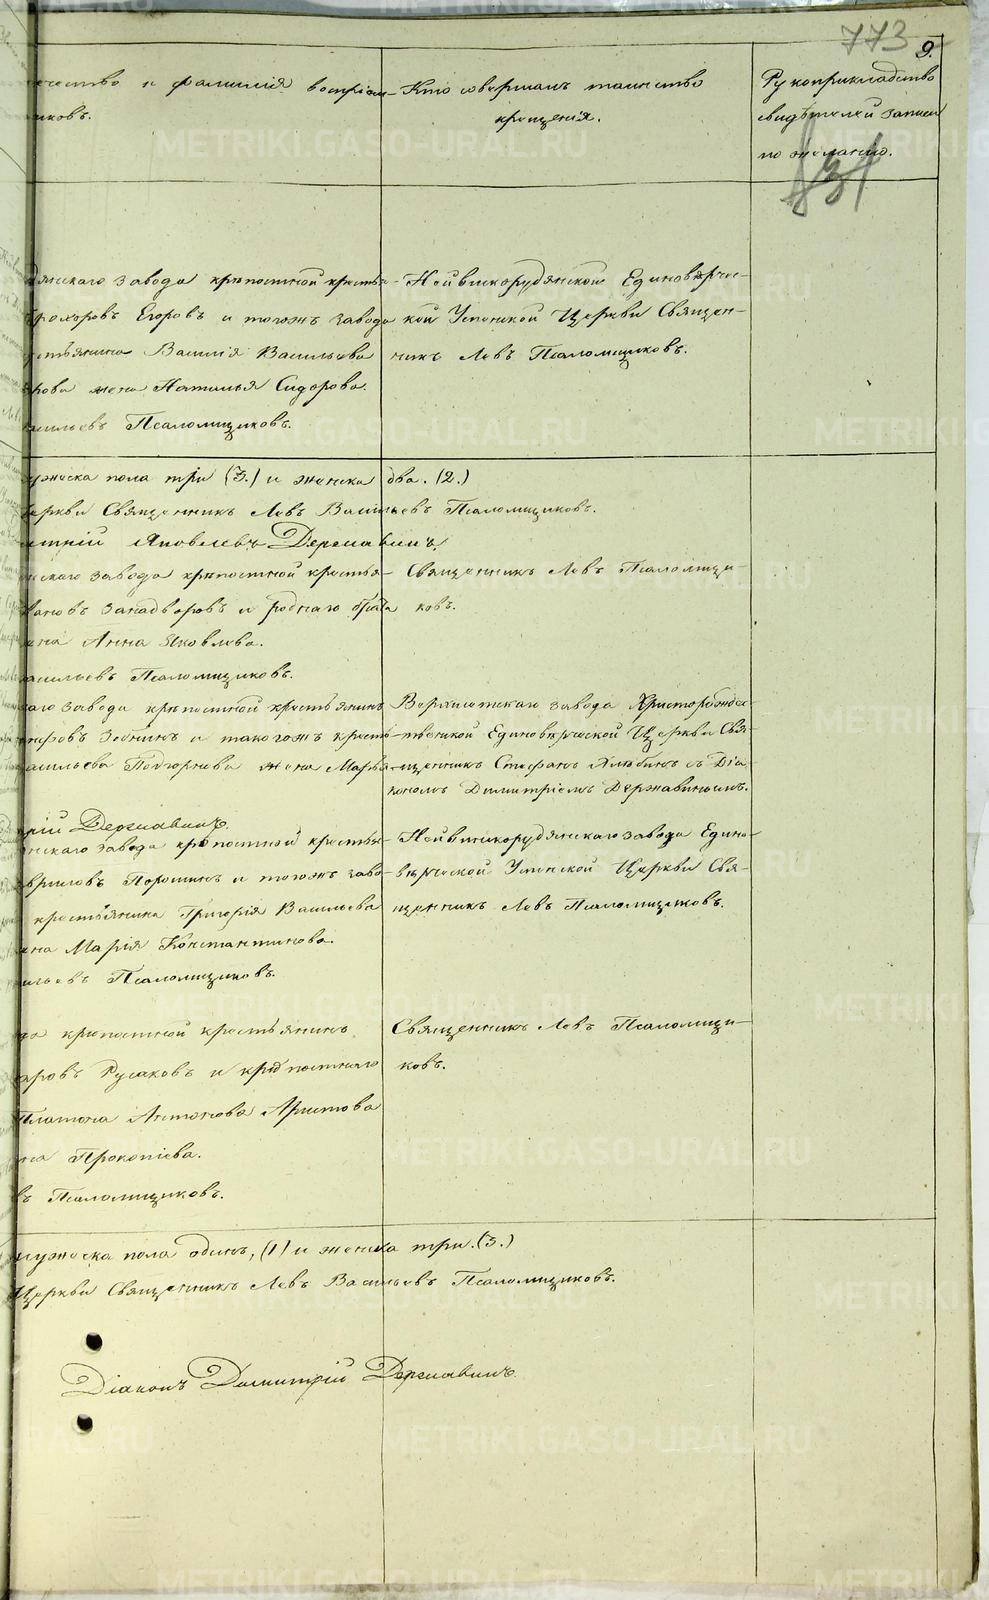 773 9.
чество и фамилія воспріем-
никовъ.
Кто совершалъ таинство
крещенія.
Рукоприкладство
свидѣтелей записи
по желанію.
дянскаго завода крѣпостной крестья-
Прохоровъ Егоровъ и тогожъ завода
крестьянина Василія Васильева
жена Наталья Сидорова.
Васильевъ Псаломщиковъ.
Нейвискорудянской Единовѣрчес-
кой Успенской Церкви Священ-
никъ Левъ Псаломщиковъ.
мужеска пола три (3.) и женска два. (2.)
Церкви Священникъ Левъ Васильевъ Псаломщиковъ.
митрій Яковлевъ Державинъ.
нскаго завода крѣпостной крестья-
вановъ Западворовъ и роднаго брата
жена Анна Яковлева.
Васильевъ Псаломщиковъ.
Священникъ Левъ Псаломщи-
ковъ.
каго завода крѣпостной крестьянинъ
Зобнинъ и такогожъ кресть-
Васильева Подгорнова жена Марья
Верхисетскаго завода Христорождес-
твенской Единовѣрческой Церкви Свя-
щенникъ Стефанъ Хлюбинъ съ Діа-
кономъ Димитріемъ Державинымъ.
рій Державинъ.
нскаго завода крѣпостной крестья-
авриловъ Порошинъ и тогожъ заво-
крестьянина Григорія Васильева
жена Марія Константинова.
сильевъ Псаломщиковъ.
Нейвискорудянскаго завода Едино-
вѣрческой Успенской Церкви Свя-
щенникъ Левъ Псаломщиковъ.
да крѣпостной крестьянинъ
аровъ Русаковъ и крѣпостнаго
Платона Антонова Аристова
на Прокопіева.
въ Псаломщиковъ.
Священникъ Левъ Псаломщи-
ковъ.
мужеска пола одинъ, (1) и женска три. (3.)
Церкви Священникъ Левъ Васильевъ Псаломщиковъ.
Діаконъ Димитрій Державинъ.
METRIKI.GASO-URAL.RU